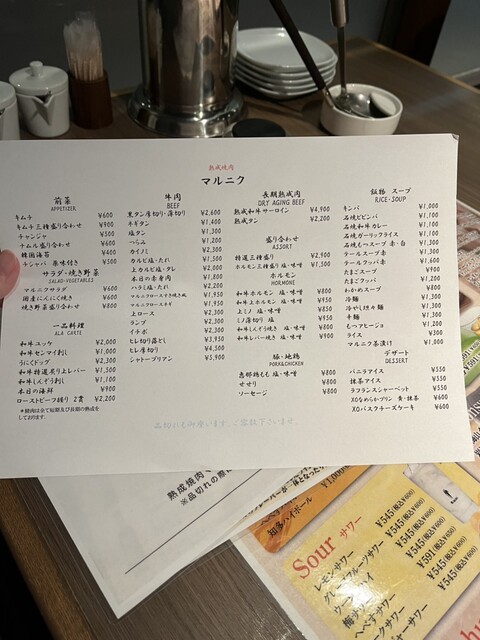 熟成焼肉
マルニク
前菜
APPETIZER
キムチ ¥600
キムチ三種盛り合わせ ¥900
チャンジャ ¥500
ナムル盛り合わせ ¥600
韓国海苔 ¥400
チシャバ 薬味付き ¥500
サラダ・焼き野菜
SALAD・VEGETABLES
マルニクサラダ ¥600
国産にんにく焼き ¥600
焼き野菜盛り合わせ ¥800
一品料理
ALA CARTE
和牛ユッケ ¥2,000
和牛センマイ刺し ¥1,000
うにくドッグ ¥2,300
和牛特選炙り上レバー ¥1,500
和牛しんぞう刺し ¥1,100
本日の海鮮 ¥900
ローストビーフ握り 2貫 ¥2,200
*精肉は全て短期及び長期の熟成を
しております。
牛肉
BEEF
黒タン厚切り・薄切り ¥2,600
ネギタン ¥1,400
塩タン ¥1,300
へらみ ¥1,200
カイノミ ¥2,300
カルビ塩・たれ ¥1,500
上カルビ塩・タレ ¥2,000
本日の赤身肉 ¥1,800
ハラミ塩・たれ ¥2,200
マルニクロースすき焼き風 ¥1,950
マルニクロースネギ ¥1,950
上ロース ¥2,300
ランプ ¥2,300
イチボ ¥2,300
ヒレ切り落とし ¥3,950
ヒレ厚切り ¥4,500
シャトーブリアン ¥5,900
長期熟成肉
DRY AGING BEEF
熟成和牛サーロイン ¥4,900
熟成タン ¥2,200
盛り合わせ
ASSORT
特選三種盛り ¥2,900
ホルモン三種盛り 塩・味噌 ¥1,500
ホルモン
HORMONE
和牛ホルモン 塩・味噌 ¥800
和牛上ホルモン 塩・味噌 ¥950
上ミノ 塩・味噌 ¥950
ミノ薄切り 塩 ¥850
和牛しんぞう焼き 塩・味噌 ¥800
和牛レバー焼き 塩・味噌 ¥900
豚・地鶏
PORK&CHICKEN
恵那鶏もも 塩・味噌 ¥800
せせり ¥800
ソーセージ ¥800
飯物 スープ
RICE・SOUP
キンパ ¥1,000
石焼ビビンバ ¥1,100
石焼和牛カレー ¥1,100
石焼ガーリックライス ¥1,100
石焼もつスープ 赤・白 ¥1,300
テールスープ ¥1,300
テールクッパ ¥1,600
たまごスープ ¥900
たまごクッパ ¥1,200
わかめスープ ¥800
冷麺 ¥1,300
冷やし坦々麺 ¥1,300
牛麺 ¥1,300
もつアヒージョ ¥1,200
ライス ¥350
マルニク茶漬け ¥1,000
デザート
DESSERT
バニラアイス ¥550
抹茶アイス ¥550
ラフランスシャーベット ¥550
XOなめらかプリン 黄・抹茶 ¥600
XOバスクチーズケーキ ¥600
品切れも御座います。ご容赦下さいませ。
熟成焼肉
※品切れの際に
知多ハイボール
Sour サワー
レモンサワー ¥545(税込¥600)
グレープフルーツサワー ¥545(税込¥600)
ウーロンハイ ¥545(税込¥600)
梅サワー
へべすサワー
¥591(税込¥650)
¥545(税込¥600)